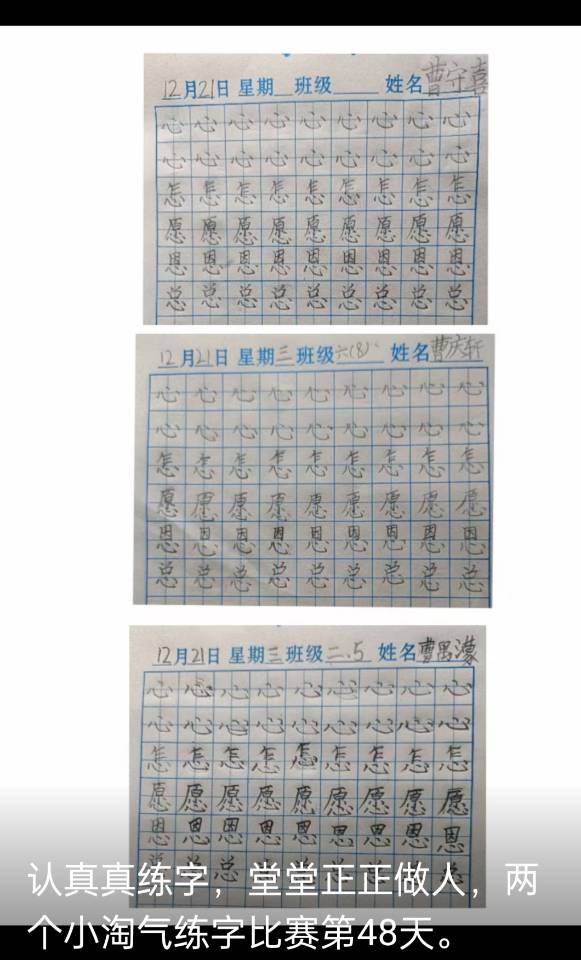 12月21日 星期 班级 姓名 曹守喜
心心心心心心心心心
心心心心心心心心心
怎怎怎怎怎怎怎怎怎
愿愿愿愿愿愿愿愿愿
恩恩恩恩恩恩恩恩恩
总总总总总总总总总
12月21日 星期三 班级六(8) 姓名曹庆轩
心心心心心心心心心
心心心心心心心心心
怎怎怎怎怎怎怎怎怎
愿愿愿愿愿愿愿愿愿
恩恩恩恩恩恩恩恩恩
总总总总总总总总总
12月21日 星期三 班级二.5 姓名曹禺濛
心心心心心心心心心
心心心心心心心心心
怎怎怎怎怎怎怎怎怎
愿愿愿愿愿愿愿愿愿
恩恩恩恩恩恩恩恩恩
总总总总总总总总总
认真真练字，堂堂正正做人，两
个小淘气练字比赛第48天。